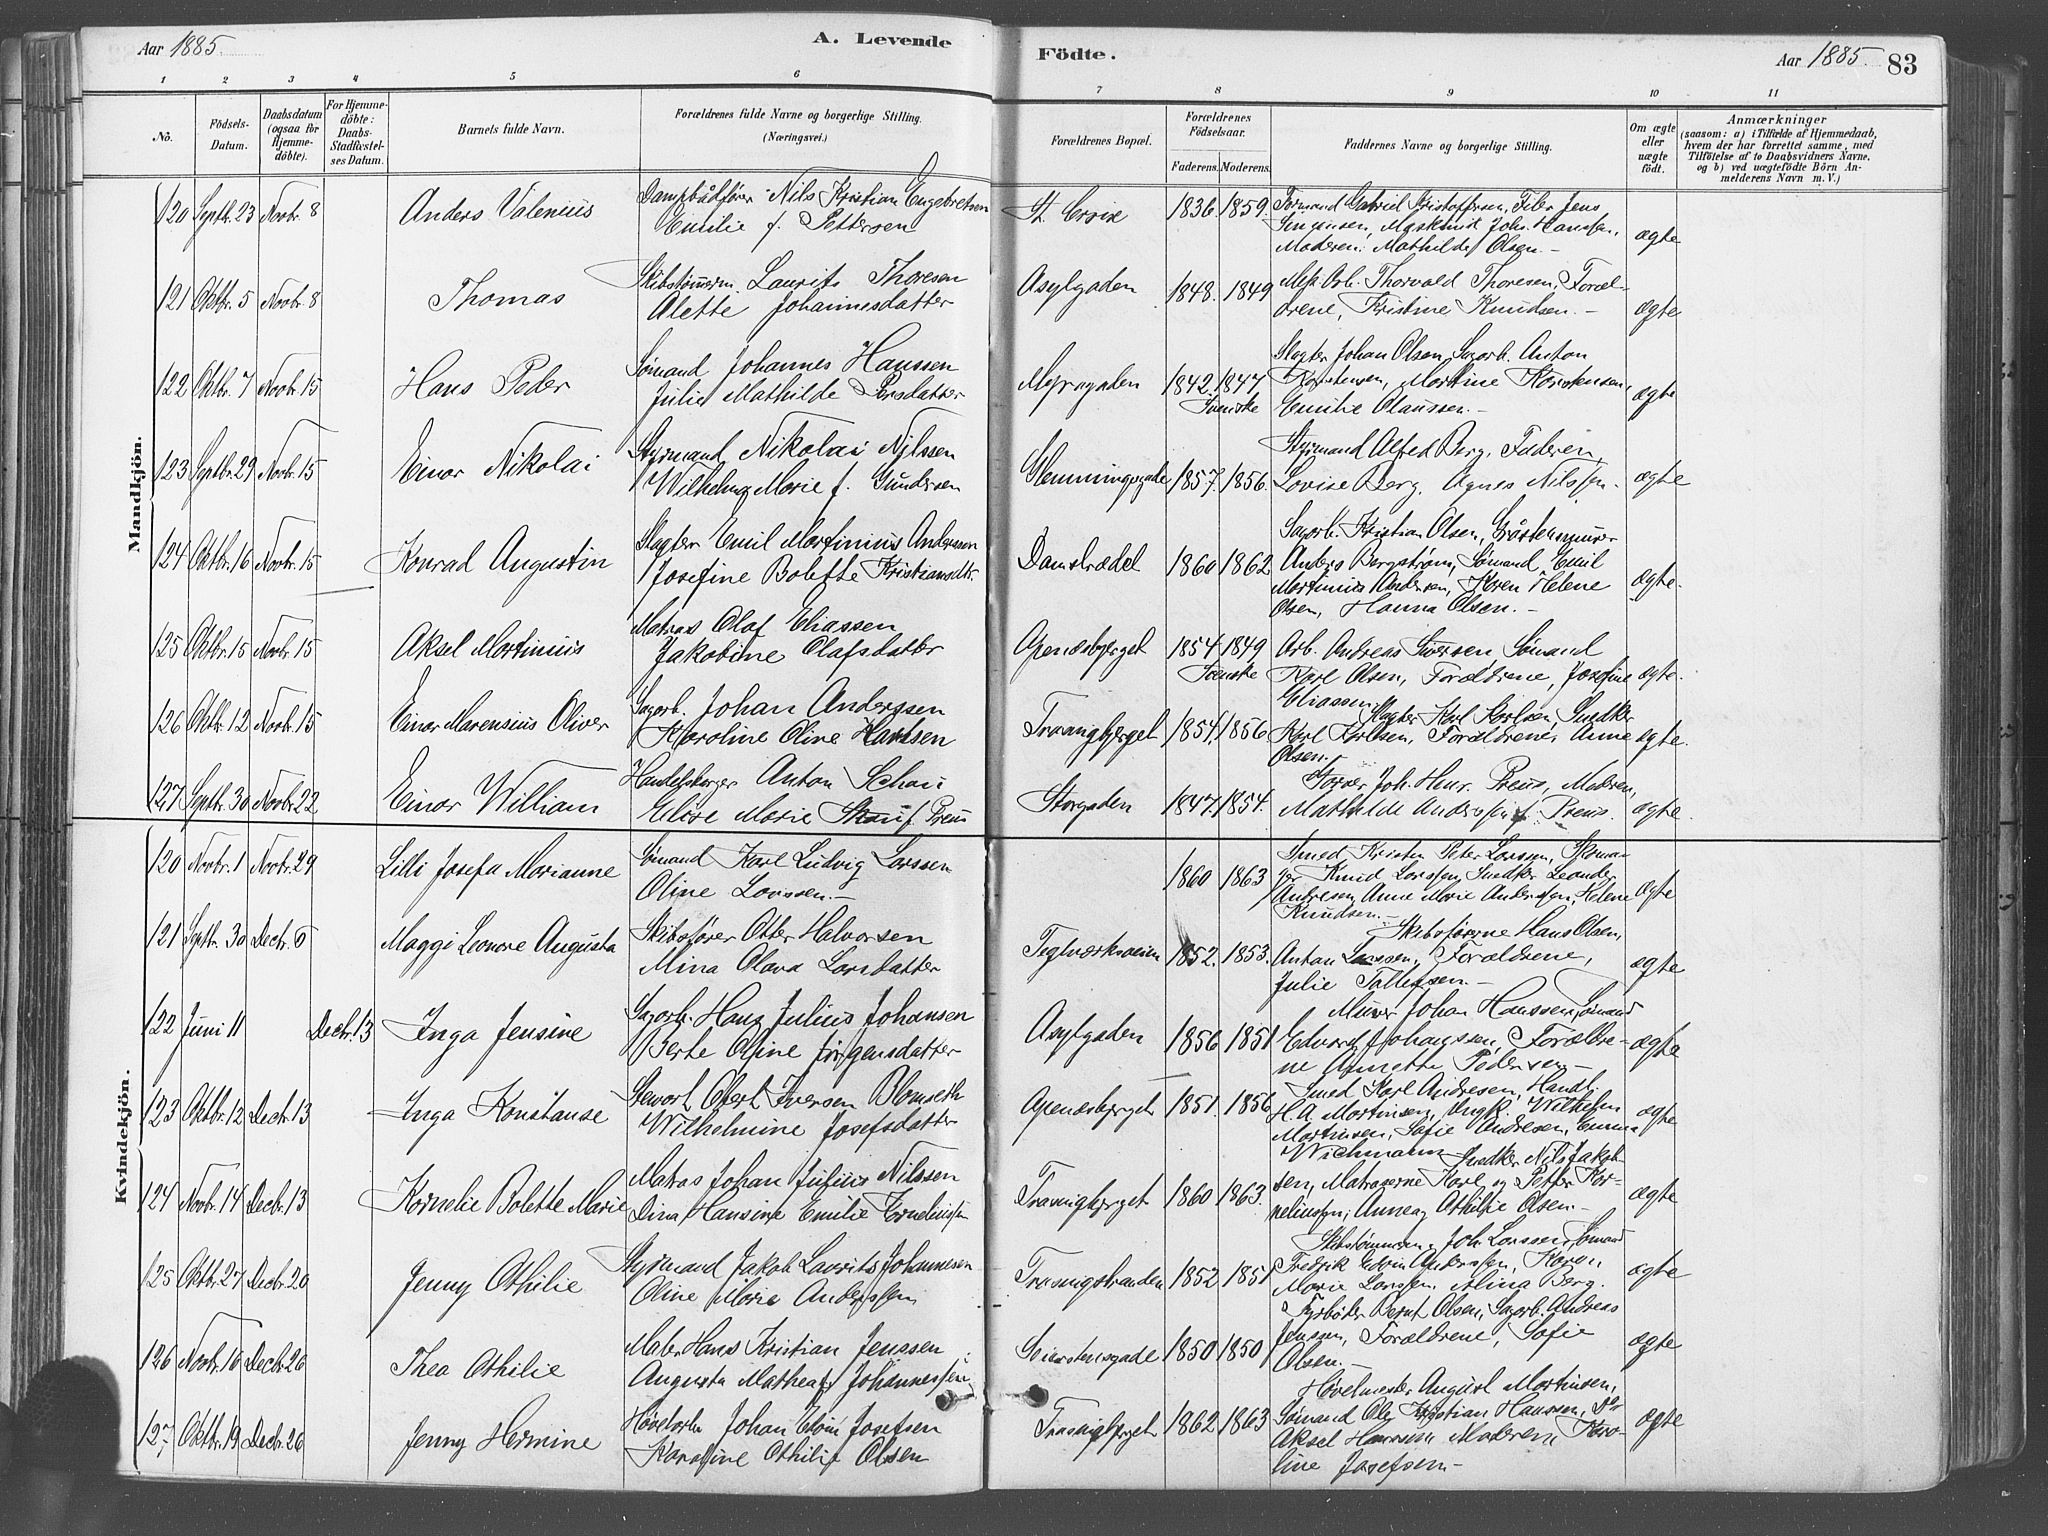 Aar 1885. A. Levende
Födte. Aar 1885. 83
1 2 3 4 5 6 7 8 9 10 11
No. Födsels-Datum. Daabsdatum (ogsaa for Hjemme-döbte). For Hjemme-döbte: Daabs-Stadfæstel-ses Datum. Barnets fulde Navn. Forældrenes fulde Navne og borgerlige Stilling. (Næringsvei.) Forældrenes Bopæl. Forældrenes Födselsaar. Faderens. Moderens. Faddernes Navne og borgerlige Stilling. Om ægte eller uægte födt. Anmærkninger (saasom: a) i Tilfælde af Hjemmedaab, hvem der har forrettet samme, med Tilföielse af to Daabsvidners Navne. og b) ved uægtefödte Börn An-melderens Navn m. V.)
Mandkjön.
120 Septbr. 23 Novbr. 8 Anders Valenius Dampbådfører Nils Kristian Engebretsen
Emilie f. Pettersen St. Croix 1836. 1859. Formand Gabriel Kristoffersen, Filer Jens
Jørginsen, Maskinist Joh. Hanssen,
Moderen. Mathilde Olsen.- ægte
121 Oktbr. 5 Novbr. 8 Thomas Skibstømerm. Laurits Thoresen
Alette Johannesdatter Asylgaden 1848. 1849 Mek. Arb. Thorvald Thoresen, Foræl-
drene, Kristine Knudsen.- ægte
122 Oktbr. 7 Novbr. 15 Hans Peder Sømand Johannes Hanssen
Julie Mathilde Larsdatter Myragaden 1842. 1847 Svenske Slagter Johan Olsen, Sagarb. Anton
Karstensen, Martine Karstensen,
Emilie Claussen.- ægte
123 Septbr. 29 Novbr. 15 Einar Nikolai Styrmand Nikolai Nilssen
Wilhelma Marie f. Gundersen Glemmingegade 1857. 1856. Styrmand Alfred Berg, Faderen,
Lovise Berg, Agnes Nilssen.- ægte
124 Oktbr. 16 Novbr. 15 Konrad Augustin Slagter Emil Martinius Anderssen
Josefine Bolette Kristiansdtr. Damstrædet 1860 1862 Sagarb. Kristian Olsen, Gråstensmurer
Anders Bergstrøm, Sømand Emil
Martinius Andersen, Karen Helene
Olsen, Hanna Olsen.- ægte.
125 Oktbr. 15 Novbr. 15 Aksel Martinius Matros Olaf Eliassen
Jakobine Olafsdatter Apenæsbjerget 1854. 1849 Svenske Arb. Andreas Iversen Sømand
Karl Olsen, Forældrene, Josefine
Eliassen. ægte.
126 Oktbr. 12 Novbr. 15 Einar Marensius Oliver Sagarb. Johan Anderssen
Karoline Oline Karlsen Trosvigbjerget 1854. 1856 Slagter Karl Karlsen, Snedker
Karl Karlsen, Forældrene, Anne
Olsen.- ægte.
127 Septbr. 30 Novbr. 22 Einar William Handelsborger Anton Schau
Elise Marie f. Preus Storgaden 1847. 1854. Garver Joh. Henr. Preus, Moderen,
Mathilde Anderssen f. Preus. ægte.
Kvindekjön.
120 Novbr. 1 Novbr. 29 Lilli Josefa Marianne Sømand Karl Ludvig Larssen
Oline Larssen.- 1860 1863 Smed Kristen Peter Larssen, Skoma-
ger Knud Larssen, Snedker Leander
Andresen, Anne Marie Anderssen, Helene
Knudsen.- ægte
121 Septbr. 30 Decbr. 6 Maggi Leonore Augusta Skibsfører Otter Halvorsen
Mina Olava Larsdatter Teglværksveien 1852. 1853. Skibsførerne Hans Olsen,
Anton Larssen, Forældrene,
Julie Tollefsen.- ægte
122 Juni 11 Decbr. 13 Inga Jensine Sagarb. Hans Julius Johansen
Berte Oline Jørgensdatter Asylgaden 1856 1851 Murer Johan Hanssen, Sømand
Edvard Johanssen, Forældre-
ne Annette Pedersen- ægte
123 Oktbr. 12 Decbr. 13 Inga Konstanse Stewart Obert Iversen Blomseth
Wilhelmine Josefsdatter Apenæsbjerget 1851. 1856 Smed Karl Andresen, Handl.
H. A. Martinsen, Ungk. Wilhelm
Martinsen, Sofie Andresen, Emma
Wichmann ægte
124 Novbr. 14 Decbr. 13 Kornelie Bolette Marie Matros Johan Julius Nilssen
Dina Hansine Emilie Kornelius[sen] Trosvigbjerget 1860 1863. Snedker Nils Jakob-
sen, Matroserne Karl og Petter Kor-
neliussen, Anne og Othilie Olsen.- ægte
125 Oktbr. 27 Decbr. 20 Jenny Othilie Styrmand Jakob Laurits Johannesen
Oline Marie Anderssen Trosvigstranden 1852 1851 Skibstømmerm. Joh. Larssen, Sømand
Fredrik Edvin Anderssen, Karen
Marie Larssen, Alina Berg. ægte
126 Novbr. 16 Decbr. 26 Thea Othilie Maler Hans Kristian Jenssen
Augusta Mathea f. Johannessen 1850 1850 Fyrbøder Bernt Olsen, Sagarb. Andreas
Jenssen, Forældrene, Sofie
Olsen.- ægte
127 Oktbr. 19 Decbr. 26 Jenny Hermine Høvelarb. Johan Edvin Josefsen
Karoline Othilie Olsen Trosvigbjerget 1862 1863 Høvelmester August Martinsen,
Sømand Ole Kristian Hanssen, Do
Aksel Hanssen Moderen, Karo-
line Josefsen- ægte